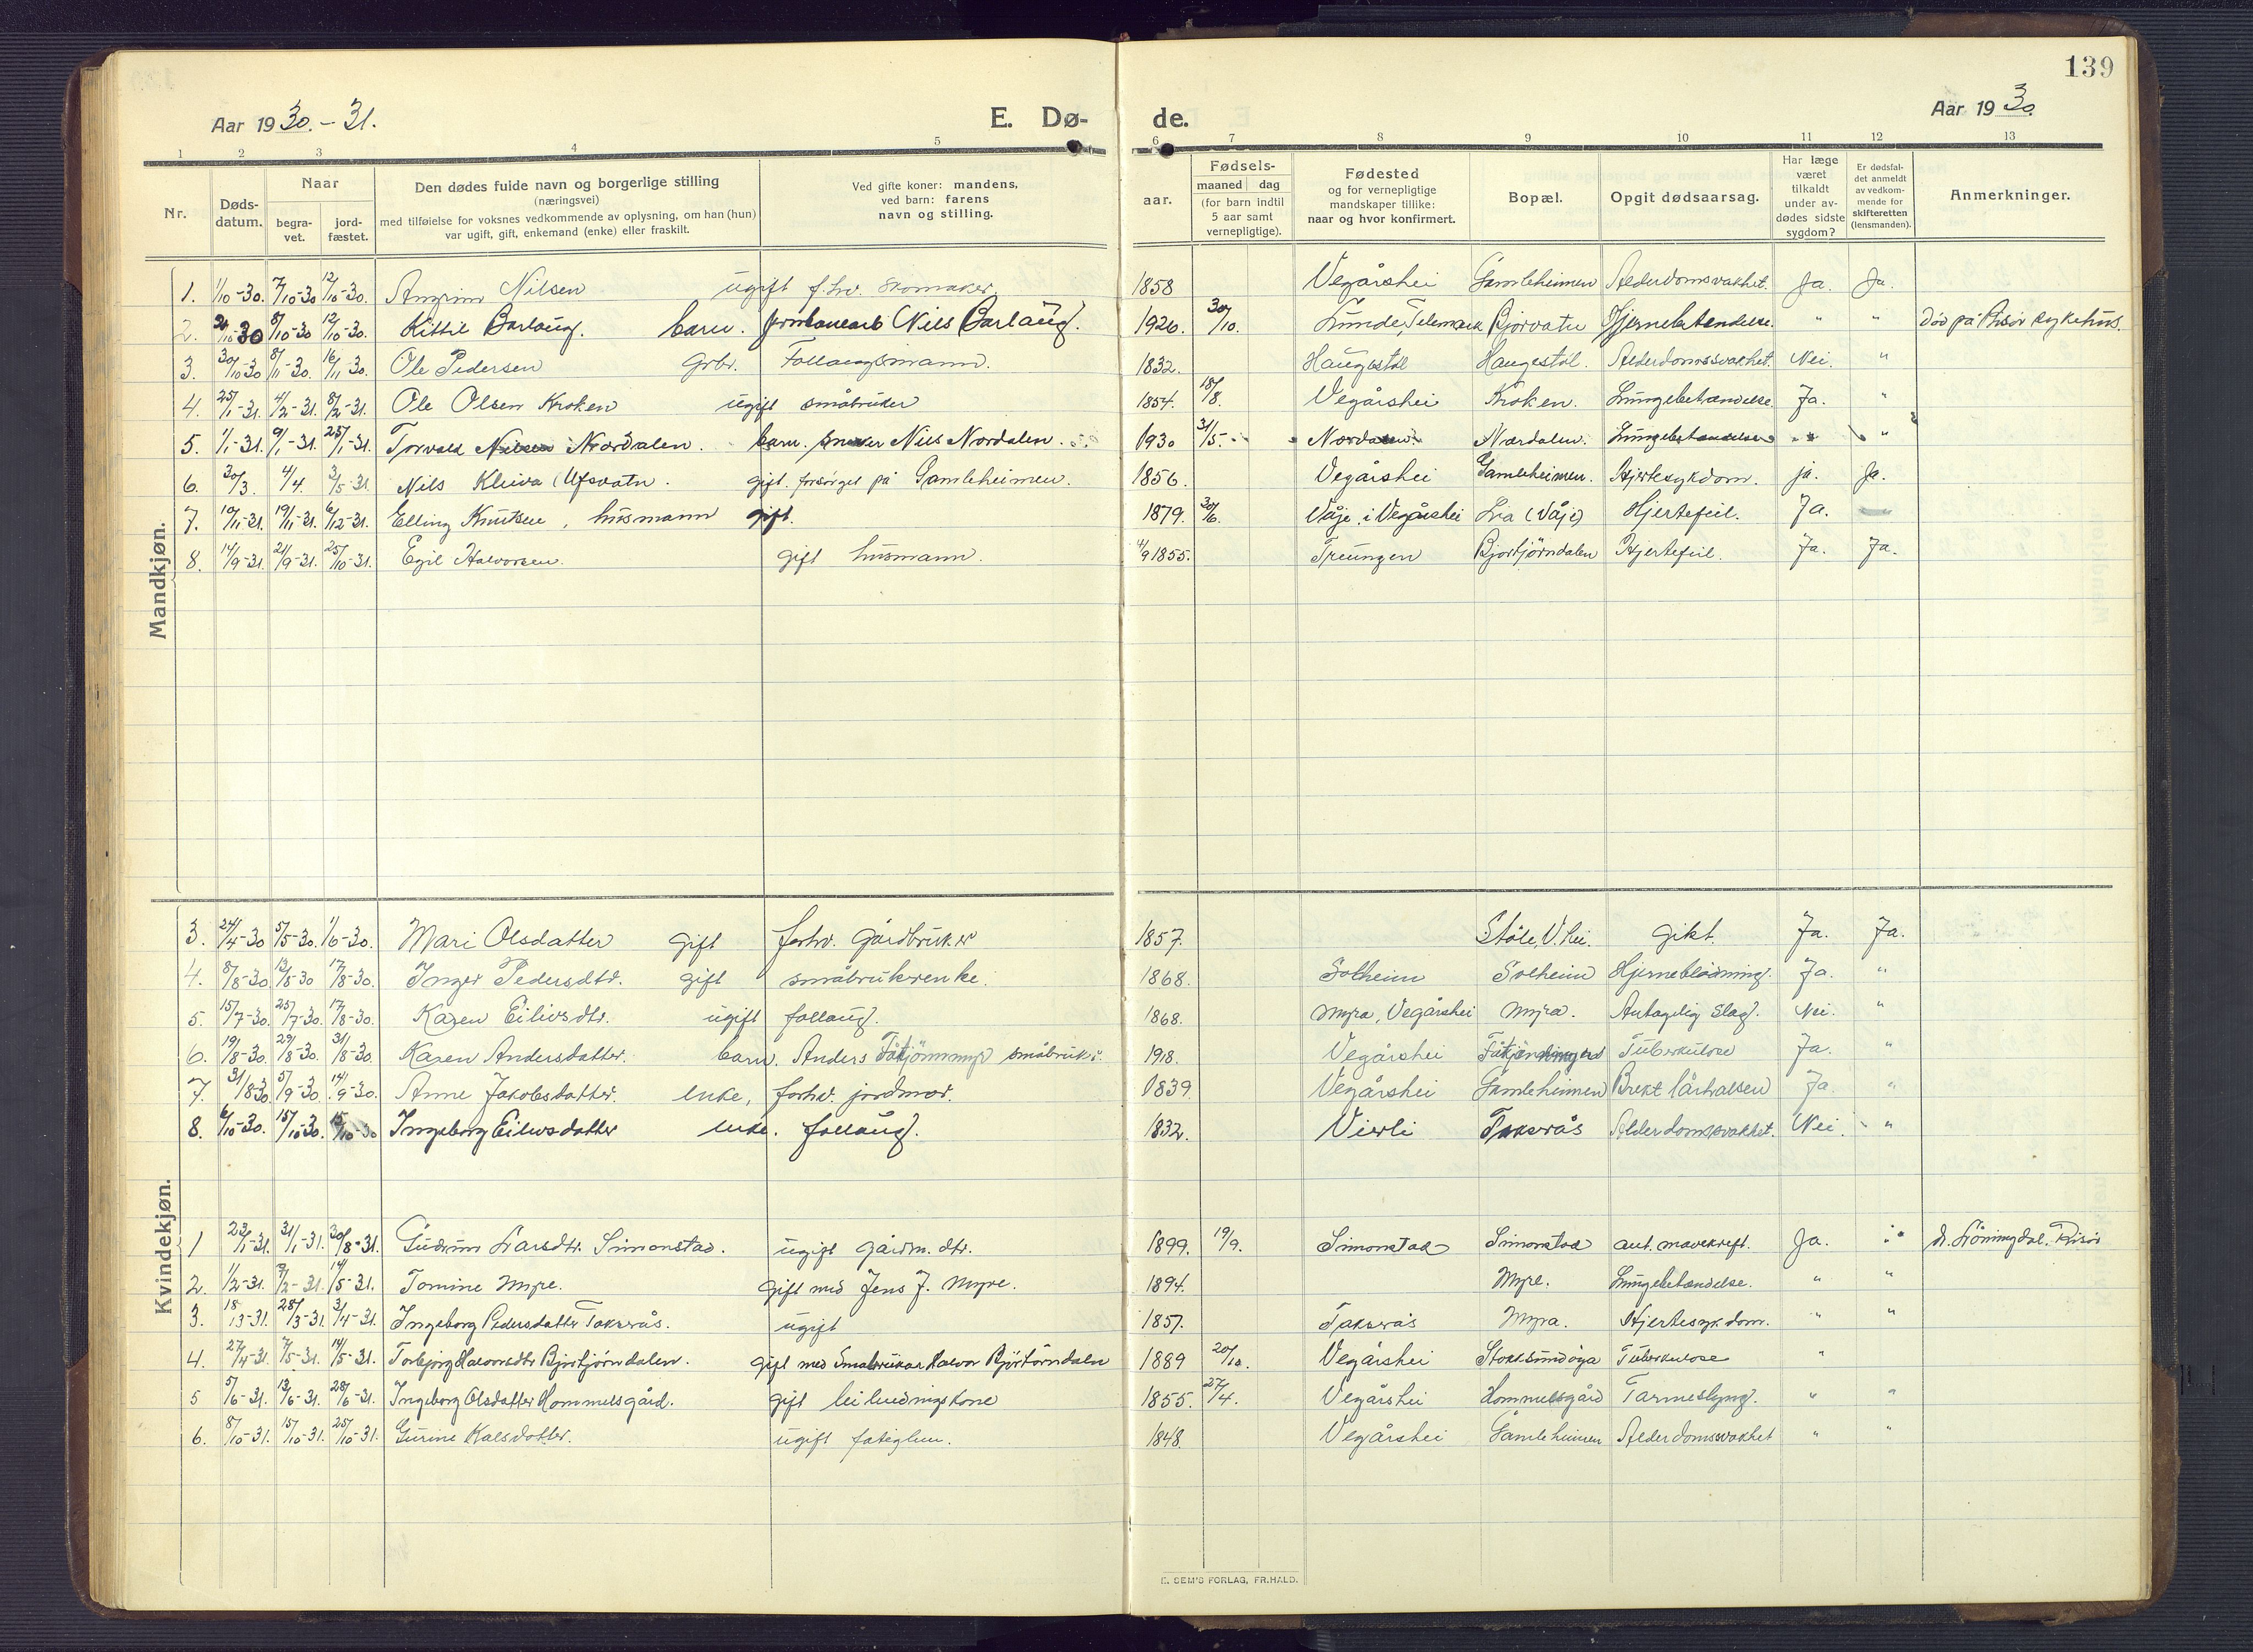 139
Aar 1930.-31.
E. Dø-
de.
Aar 1930.
1 2 3 4 5 6 7 8 9 10 11 12 13
Nr.
Døds-
datum.
Naar
begra-
vet.
jord-
fæstet.
Den dødes fulde navn og borgerlige stilling
(næringsvei)
med tilføielse for voksnes vedkommende av oplysning, om han (hun)
var ugift, gift, enkemand (enke) eller fraskilt.
Ved gifte koner: mandens,
ved barn: farens
navn og stilling.
aar.
Fødsels-
maaned dag
(for barn indtil
5 aar samt
vernepligtige).
Fødested
og for vernepligtige
mandskaper tillike:
naar og hvor konfirmert.
Bopæl.
Opgit dødsaarsag.
Har læge
været
tilkaldt
under av-
dødes sidste
sygdom?
Er dødsfal-
det anmeldt
av vedkom-
mende for
skifteretten
(lensmanden).
Anmerkninger.
Mandkjøn.
1. 1/10-30. 7/10-30 12/10-30. Nilsen ugift f.hv. skomaker. 1858 Vegårshei Gamleheimen Alderdomsvakhet. Ja. Ja.
2. 8/10-30 12/10-30. Kittil Barlaug. barn. Nils Barlaug. 1926. 30/10. Lunde, Telemark Bjorvatn Hjernebetendelse. " " Død på Risör sykehus.
3. 30/10-30 8/11-30. 16/11-30. Ole Pedersen Grbr. Follaugsmann. 1832. Haugestöl Haugestöl. Alderdomssvakhet. Nei. "
4. 25/1-31. 4/2-31. 8/2-31. Ole Olsen Kroken ugift småbruker 1854. 18/8. Vegårshei Kroken. Lungebetændelse. Ja. "
5. 1/1-31. 9/1-31. 25/1-31. Torvald Nilsen Nordalen. barn. Nils Nordalen. 1930 31/5. Nordalen Nordalen. Lungebetændelse " "
6. 30/3. 4/4. 3/5-31. Nils Kleiva (Ufsvatn. gift. forsörget på Gamleheimen. 1856. Vegårshei Gamleheimen. Hjertesykdom. ja. Ja.
7. 10/11-31. 19/11-31. 6/12-31. Elling Knutsen, husmann gift. 1879. 30/6. Våje i Vegårshei Lia (Våje) Hjertefeil. Ja.
8. 14/9-31. 21/9-31. 25/10-31. Egil Halvorsen. gift husmann. 4/9 1855. Treungen Bjortjörndalen Hjertefeil. Ja. Ja.
Kvindekjøn.
3. 24/4-30 5/5-30. 1/6-30. Mari Olsdatter gift forhv. Gårdbruker 1857. Ståle, V.hei. Gikt. Ja. Ja.
4. 8/8-30 13/8-30 17/8-30. Inger Pedersdtr. gift småbrukrenke. 1868. Solheim Solheim Hjerneblödning. Ja. "
5. 15/7-30. 25/7-30. 17/8-30. Karen Eilivsdtr. ugift follaug. 1868. Myra, Vegårshei Myra. Antagelig Slag. Nei. "
6. 19/8-30. 29/8-30. 31/8-30. Karen Andersdatter. barn. Anders småbruk. 1918. Vegårshei Tuberkulose Ja. "
7. 31/8-30. 5/9-30. 14/9-30. Anne Jakobsdatter. enke, forhv. jordmor. 1839 Vegårshei Gamleheimen Brekt lårhalsen Ja. "
8. 6/10-30. 15/10-30. 15/10-30 Ingeborg Eilivsdatter enke. follaug. 1832. Vierli Takserås Alderdomssvakhet. Nei. "
1 23/1-31. 31/1-31. 30/8-31. Gudrun Larsdtr. Simonstad. ugift gårdm. dtr. 1899. 19/9. Simonstad Simonstad ant. mavekreft. Ja. " dr. Lönningdal. Risör
2. 1/2-31. 9/2-31. 14/5-31. Tomine Myre. gift med Jens J. Myre. 1894. Myre. Lungebetændelse. " "
3. 18/3-31. 28/3-31. 3/4-31. Ingeborg Pedersdatter Takserås. ugift 1857. Takserås Myra. Hjertesykdom. " "
4. 27/4-31. 7/5-31. 14/5-31. Torbjörg Halvorsdtr Bjortjörndalen. gift med Småbruker Halvor Bjortörndaln 1889 20/10. Vegårshei Stokksundöya Tuberkulose "
5 5/6-31. 13/6-31. 28/6-31. Ingeborg Olsdatter Hommelsgård. gift leilendingskone 1855. 27/4. Vegårshei Hommelsgård Tarmeslyng. " "
6. 8/10-31. 15/10-31. 25/10-31. Gurine Kalsdatter. ugift fatiglem. 1848. Vegårshei Gamleheimen Alderdomssvakhet " "
E. SEM'S FORLAG, FR.HALD.